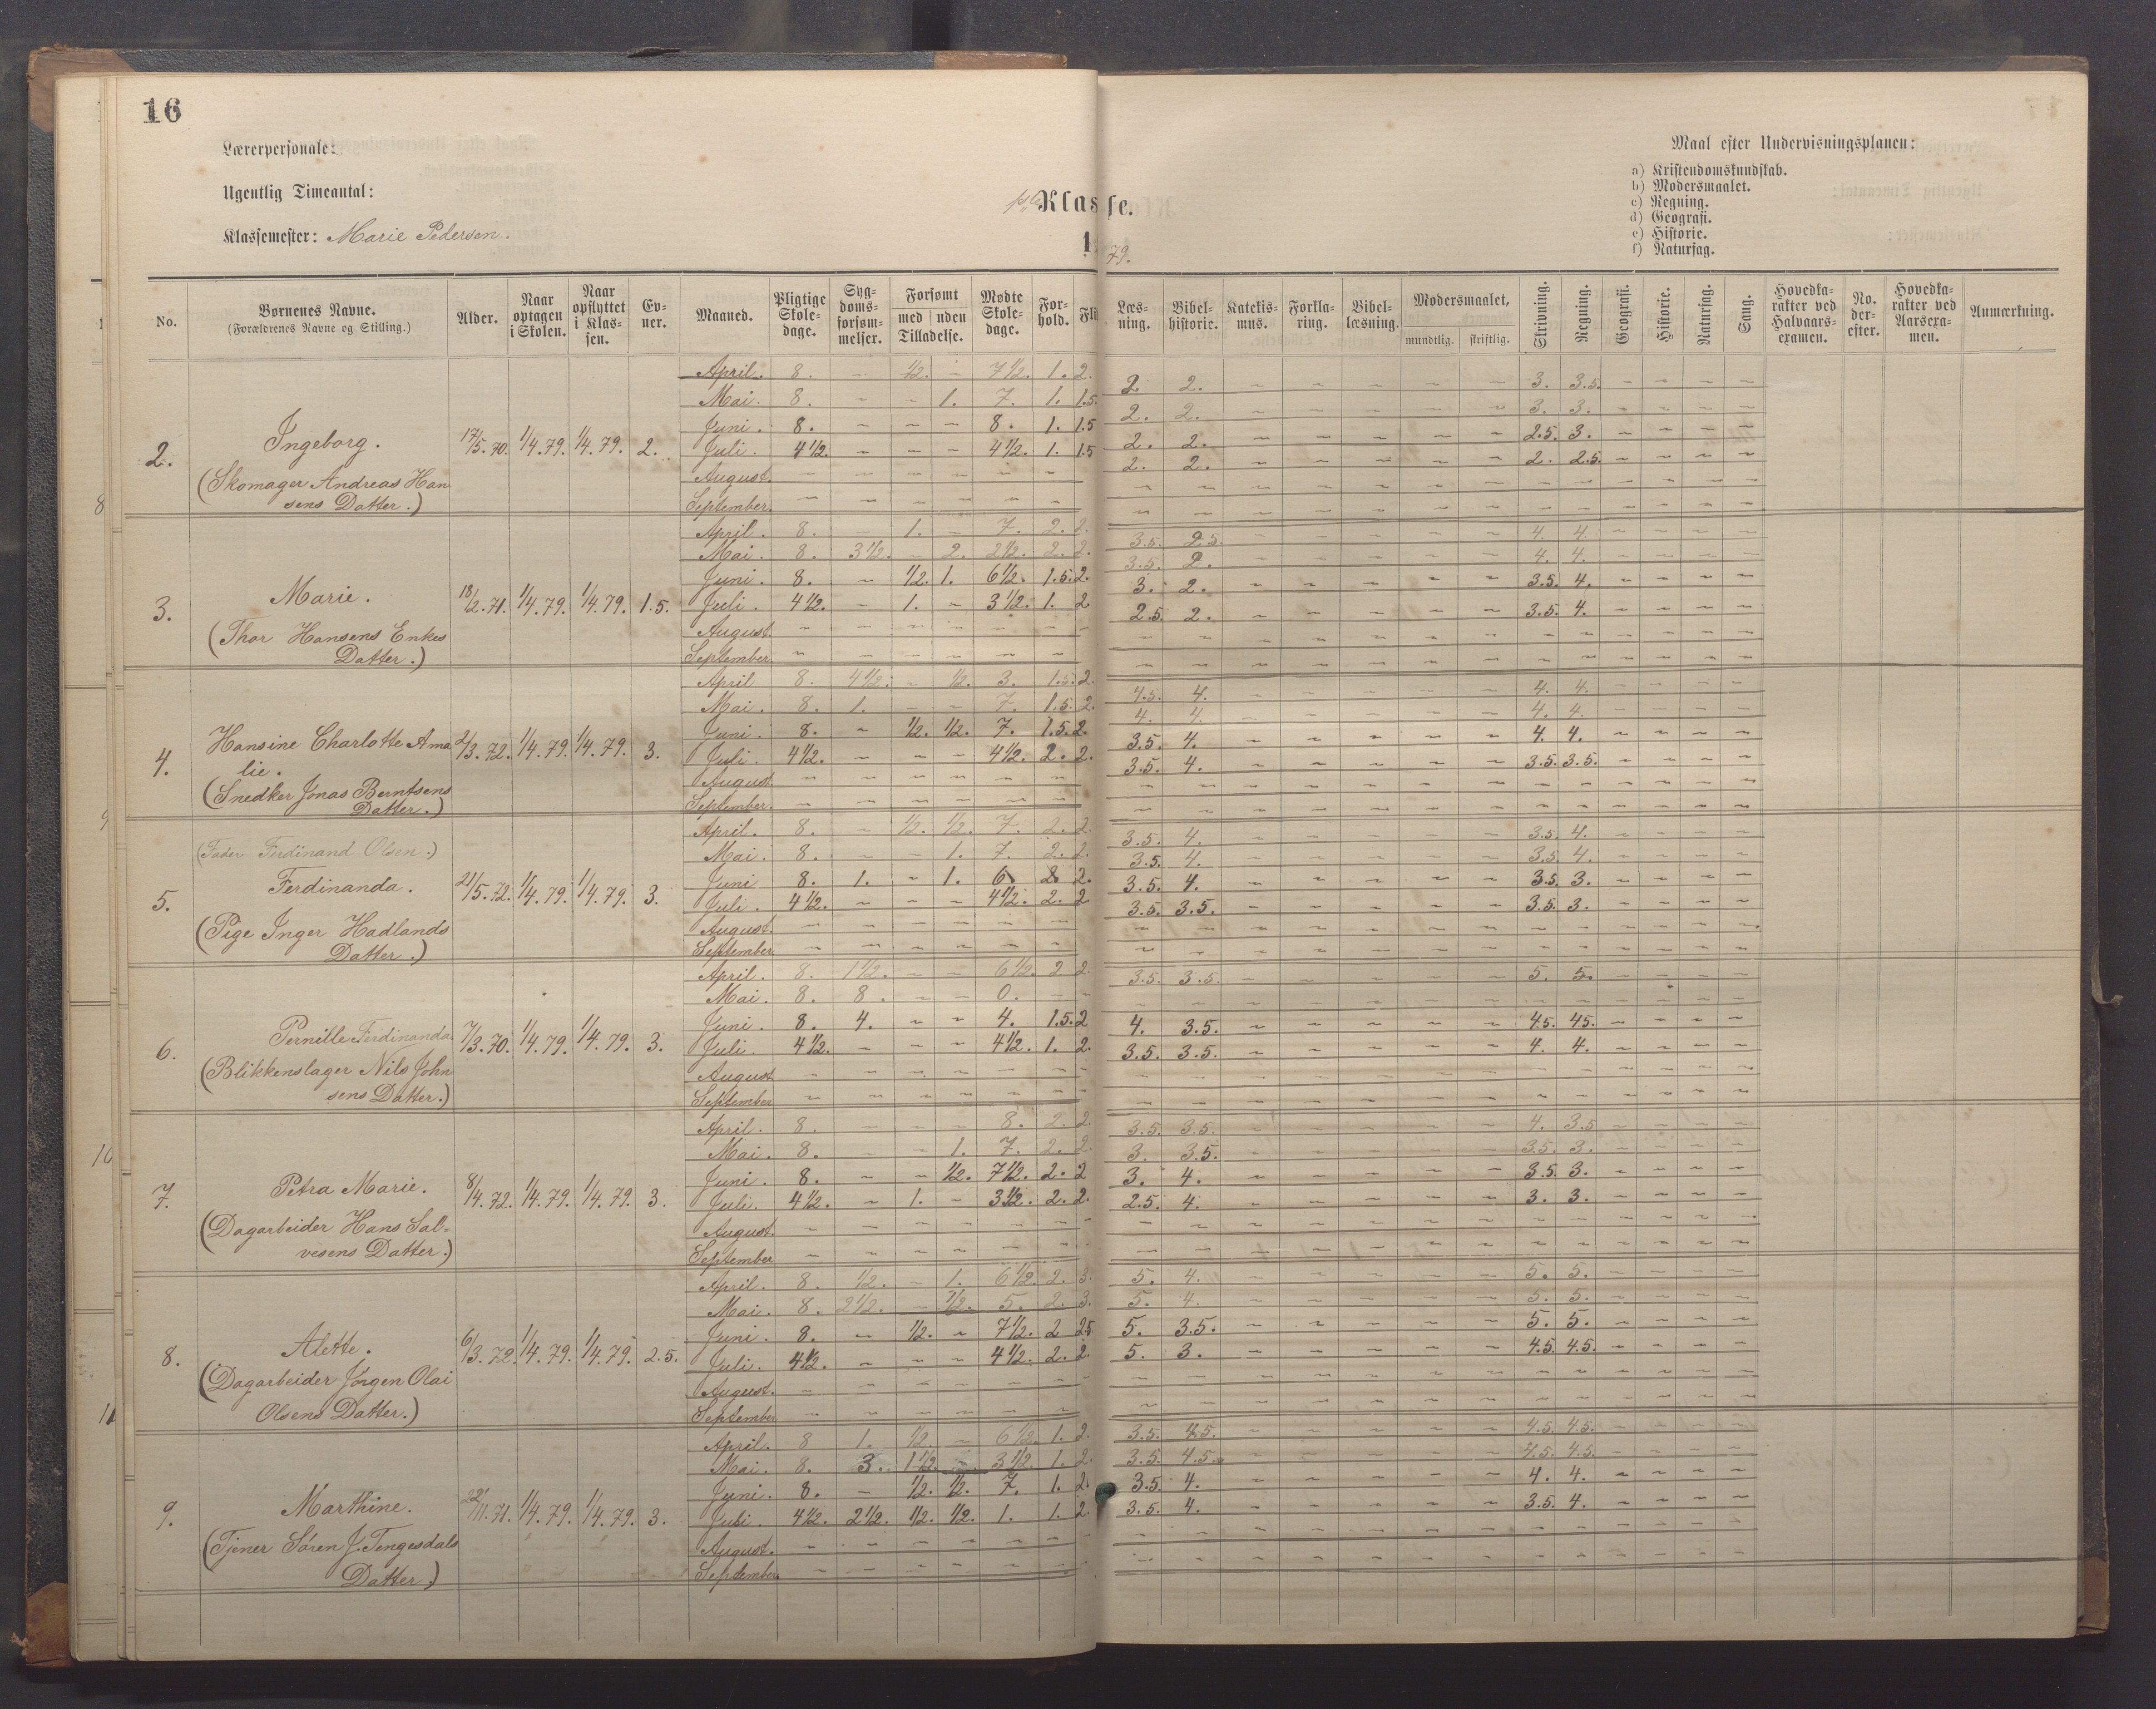 16
Lærerpersonale:
Ugentlig Timeantal:
Klassemester: Marie Pedersen.
Klasse.
79.
Maal efter Undervisningsplanen:
a) Kristendomskundskab.
b) Modersmaalet.
c) Regning.
d) Geografi.
e) Historie.
f) Naturfag.
No. Børnenes Navne. (Forældrenes Navne og Stilling.) Alder. Naar optagen i Skolen. Naar opflyttet i Klassen. Evner. Maaned. Pligtige Skoledage. Sygdomsforsømmelser. Forsømt med uden Tilladelse. Mødte Skoledage. Forhold. Fli Læsning. Bibelhistorie. Katekismus. Forklaring. Bibellæsning. Modersmaalet, mundtlig. skriftlig. Skrivning. Regning. Geografi. Historie. Naturfag. Sang. Hovedkarakter ved Halvaarsexamen. No. derefter. Hovedkarakter ved Aarsexamen. Anmærkning.
April. 8. – ½. – 7½. 1. 2. 2 2. – – – – – 3. 3.5. – – – –
Mai. 8. – – 1. 7. 1. 1.5. 2. 2. – – – – – 3. 3. – – – –
Juni. 8. – – – 8. 1. 1.5 2. 2. – – – – – 2.5. 3. – – – –
2. Ingeborg. 17/5.70. 1/4.79. 1/4.79. 2. Juli. 4½. – – – 4½. 1. 1.5 2. 2. – – – – – 2. 2.5. – – – –
(Skomager Andreas Han August. – – – – – – –
sens Datter.) September. – – – – – – –
April. 8. – 1. – 7. 2. 2. 3.5. 2.5. – – – – – 4. 4. – – – –
Mai. 8. 3½. – 2. 2½. 2. 2. 3.5. 2. – – – – – 4. 4. – – – –
Juni. 8. – ½. 1. 6½. 1.5. 2. 3. 2. – – – – – 3.5. 4. – – – –
3. Marie. 18/2.71. 1/4.79. 1/4.79. 1.5. Juli. 4½. – 1. – 3½. 1. 2 2.5 2. – – – – – 3.5. 4. – – – –
(Thor Hansens Enkes August. – – – – – – –
Datter.) September. – – – – – –
April 8. 4½. – ½. 3. 1.5. 2. 4.5. 4. – – – – – 4. 4. – – – –
Mai. 8. 1. – – 7. 1.5. 2. 4. 4. – – – – – 4. 4. – – – –
Juni. 8. – ½. ½. 7. 1.5. 2. 3.5. 4. – – – – – 4. 4. – – – –
4. Hansine Charlotte Ama 2/3.72. 1/4.79. 1/4.79. 3. Juli. 4½. – – – 4½. 2. 2. 3.5. 4. – – – – – 3.5. 3.5. – – – –
lie. August. – – – – – –
(Snedker Jonas Berntsens September. – – – – – –
Datter.)
April. 8. – ½. ½. 7. 2. 2. 3.5. 4. – – – – – 3.5. 4. – – – –
(Fader Ferdinand Olsen.) Mai. 8. – – 1. 7. 2. 2. 3.5. 4. – – – – – 3.5. 4. – – – –
Juni 8. 1. – 1. 6 2 2. 3.5. 4. – – – – – 3.5. 3. – – – –
5. Ferdinanda. 21/5.72. 1/4.79. 1/4.79. 3. Juli. 4½. – – – 4½. 2. 2 3.5. 3.5. – – – – – 3.5. 3. – – – –
(Pige Inger Hadlands August. – – – – – –
Datter.) September. – – – – – –
April. 8. 1½. – – 6½. 2 2. 3.5. 3.5. – – – – – 5. 5. – – – –
Mai. 8. 8. – – 0. – – – – – – – – – – – – – – –
Juni. 8. 4. – – 4. 1.5. 2 4. 3.5. – – – – – 4.5. 4.5. – – – –
6. Pernille Ferdinanda. 7/3.70. 1/4.79. 1/4.79. 3. Juli. 4½. – – – 4½. 1. 2. 3.5. 3.5. – – – – – 4. 4. – – – –
(Blikkenslager Nils John August. – – – – – – –
sens Datter.) September – – – – – – –
April. 8. – – – 8. 2. 2. 3.5. 3.5. – – – – – 4. 3.5 – – – –
Mai. 8. – – 1. 7. 2. 2. 3. 3.5. – – – – – 3.5. 3. – – – –
Juni. 8. – – ½. 7½. 2. 2 3. 4. – – – – – 3.5. 3. – – – –
7. Petra Marie. 8/4.72. 1/4.79. 1/4.79. 3. Juli. 4½. – 1. – 3½. 2. 2. 2.5. 4. – – – – – 3. 3. – – – –
(Dagarbeider Hans Sal- August. – – – – – – –
vesens Datter.) September – – – – – – –
April. 8. ½. – 1. 6½. 2. 3. 5. 4. – – – – – 5. 5. – – – –
Mai. 8. 2½. – ½. 5. 2. 3. 5. 4. – – – – – 5. 5. – – – –
Juni. 8. – ½. – 7½. 2 2.5 5. 3.5. – – – – – 5. 5. – – – –
8. Alette. 6/3.72. 1/4.79. 1/4.79. 2.5. Juli. 4½. – – – 4½. 2. 2. 5. 3. – – – – – 4.5. 4.5. – – – –
(Dagarbeider Jörgen Olai August. – – – – – – –
Olsens Datter.) September – – – – – –
April. 8 1. ½. – 6½. 1. 2. 3.5. 4.5. – – – – – 4.5. 4.5. – – – –
Mai. 8. 3. 1½. – 3½. 1. 2. 3.5. 4.5. – – – – – 4.5. 4.5. – – – –
Juni. 8. – ½. ½. 7. 1. 2. 3.5. 4. – – – – – 4. 4. – – – –
9. Marthine. 22/11.71. 1/4.79. 1/4.79. 3. Juli. 4½. 2½. ½. ½. 1. 1. 2. 3.5. 4. – – – – – 3.5. 4. – – – –
(Tjener Sören J. Tengesdals August. – – – – – – –
Datter.) September. – – – – – –
8
9
10
11